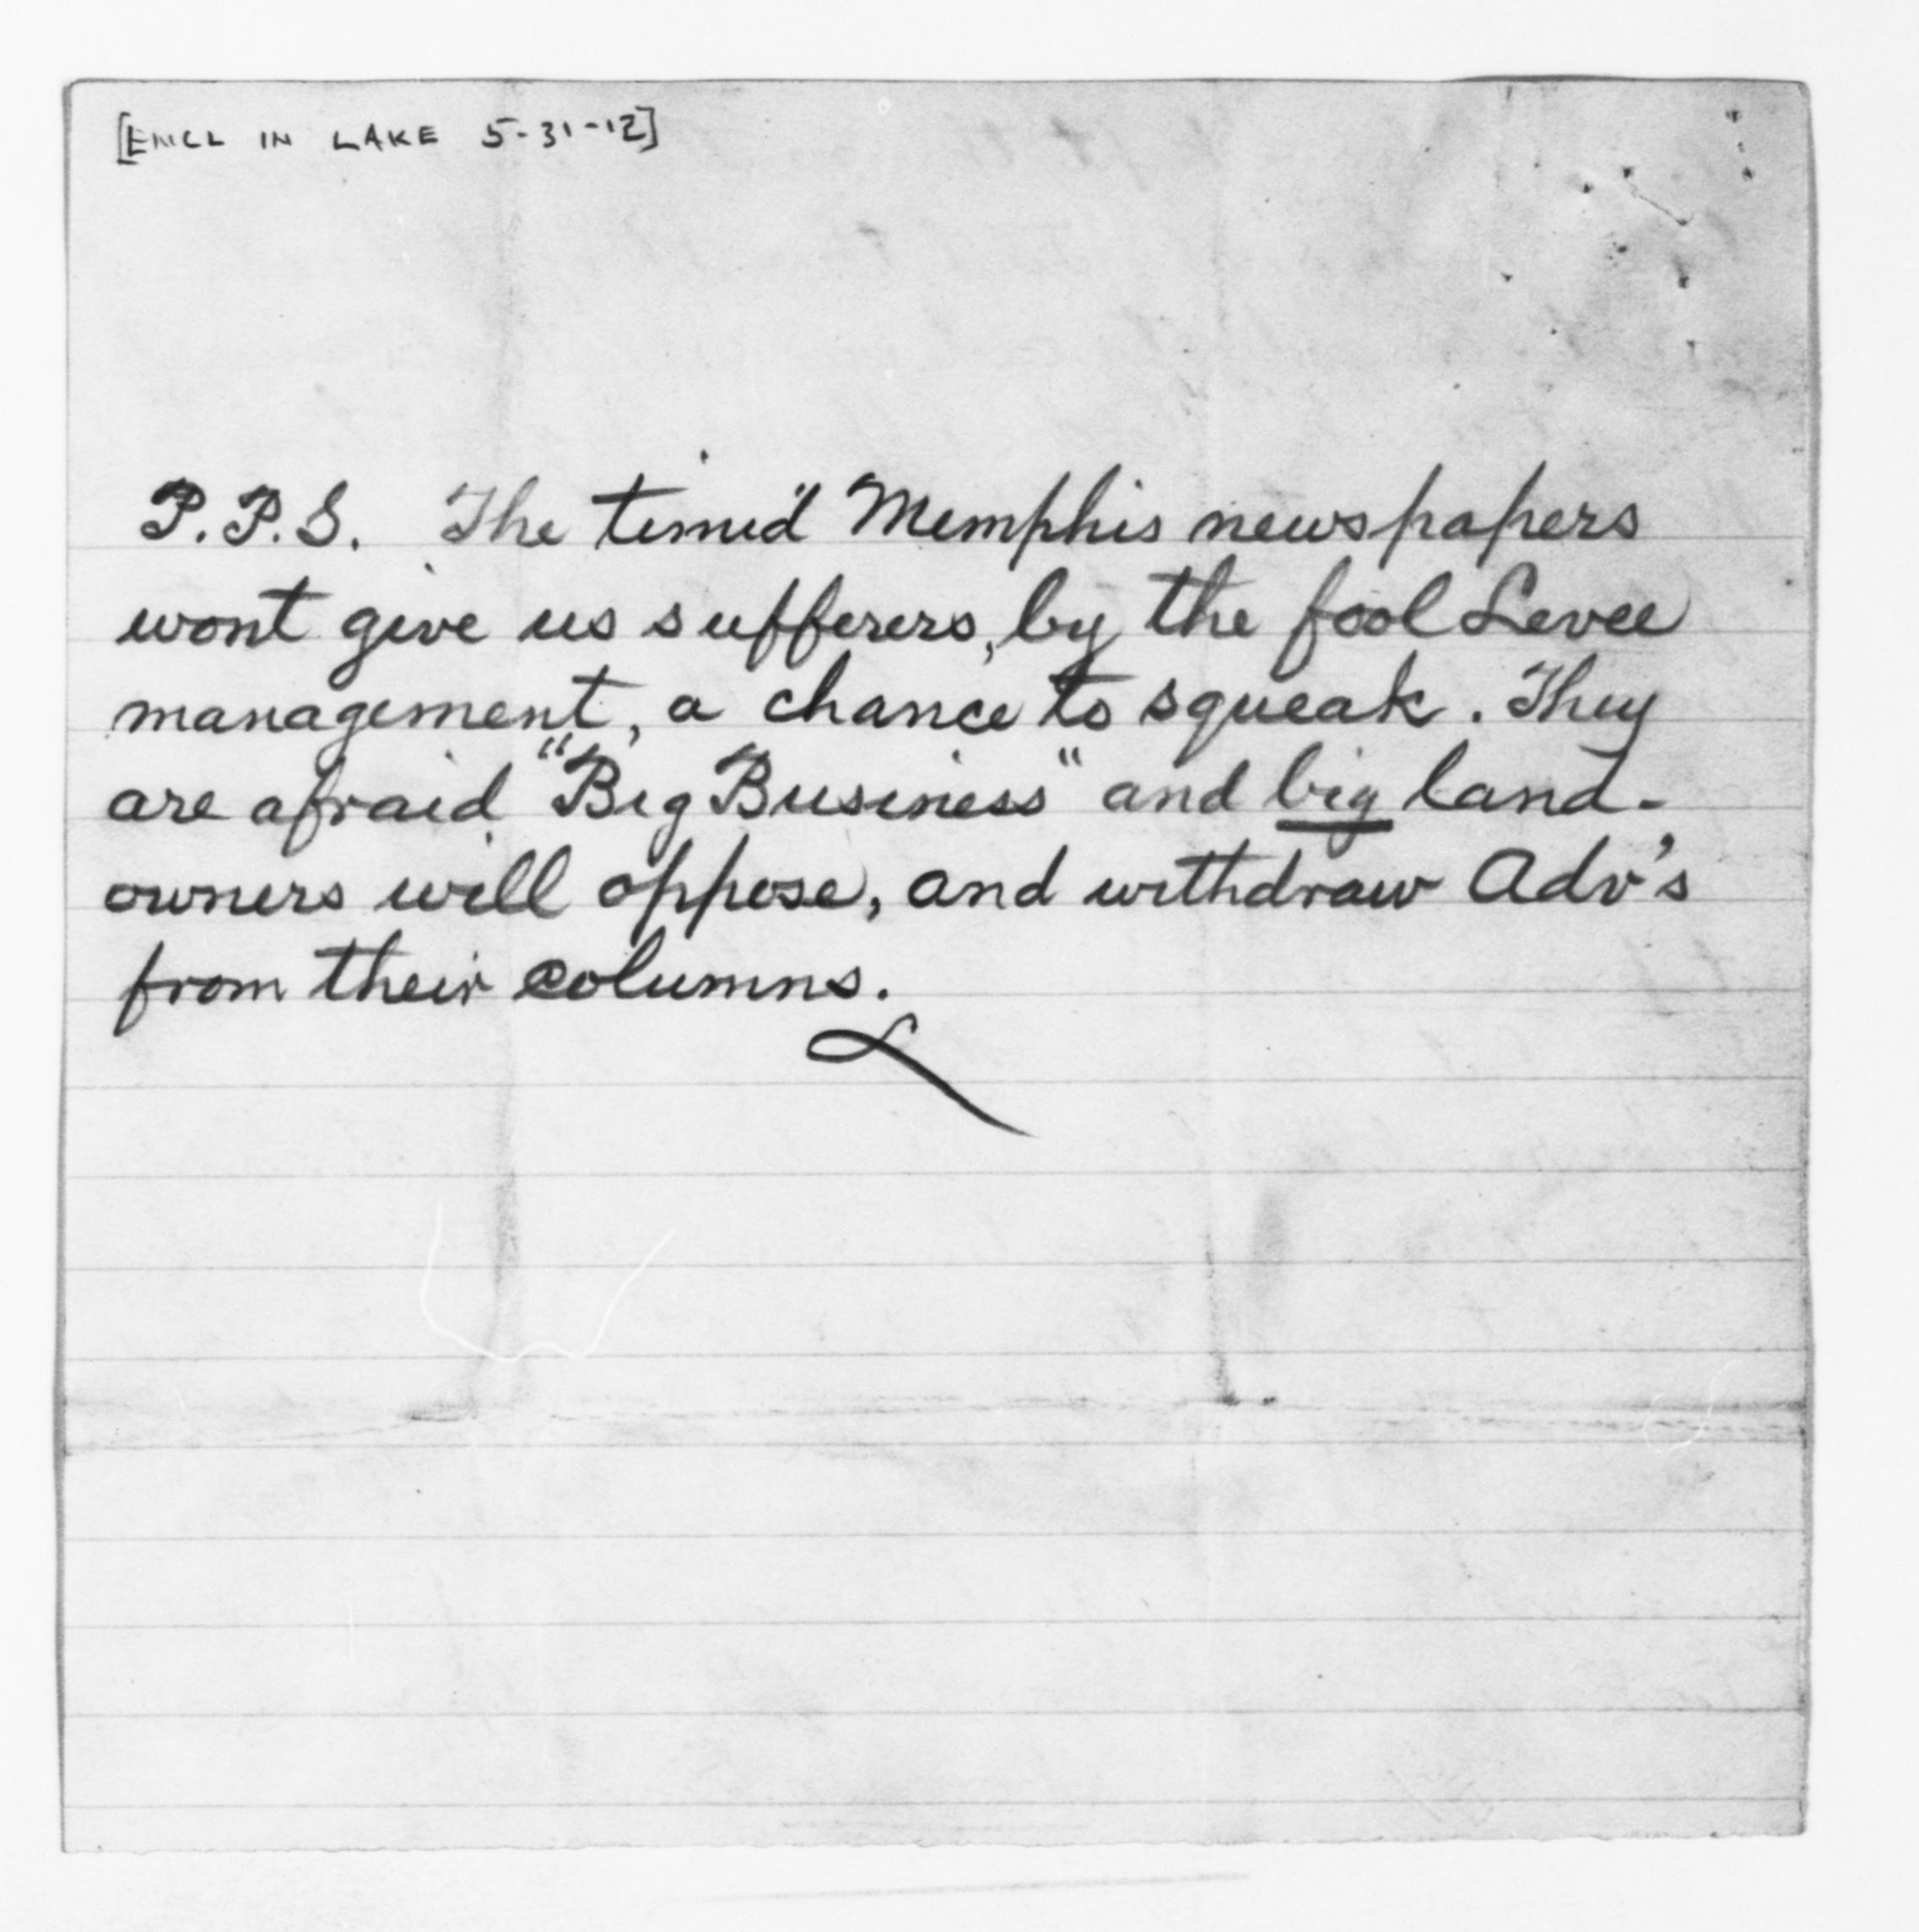 [ENCL IN LAKE 5-31-12]
P.P.S. The timid Memphis newspapers
wont give us sufferers, by the fool Levee
management, a chance to squeak. They
are afraid "Big Business" and big land-
owners will oppose, and withdraw Adv's
from their columns.
L